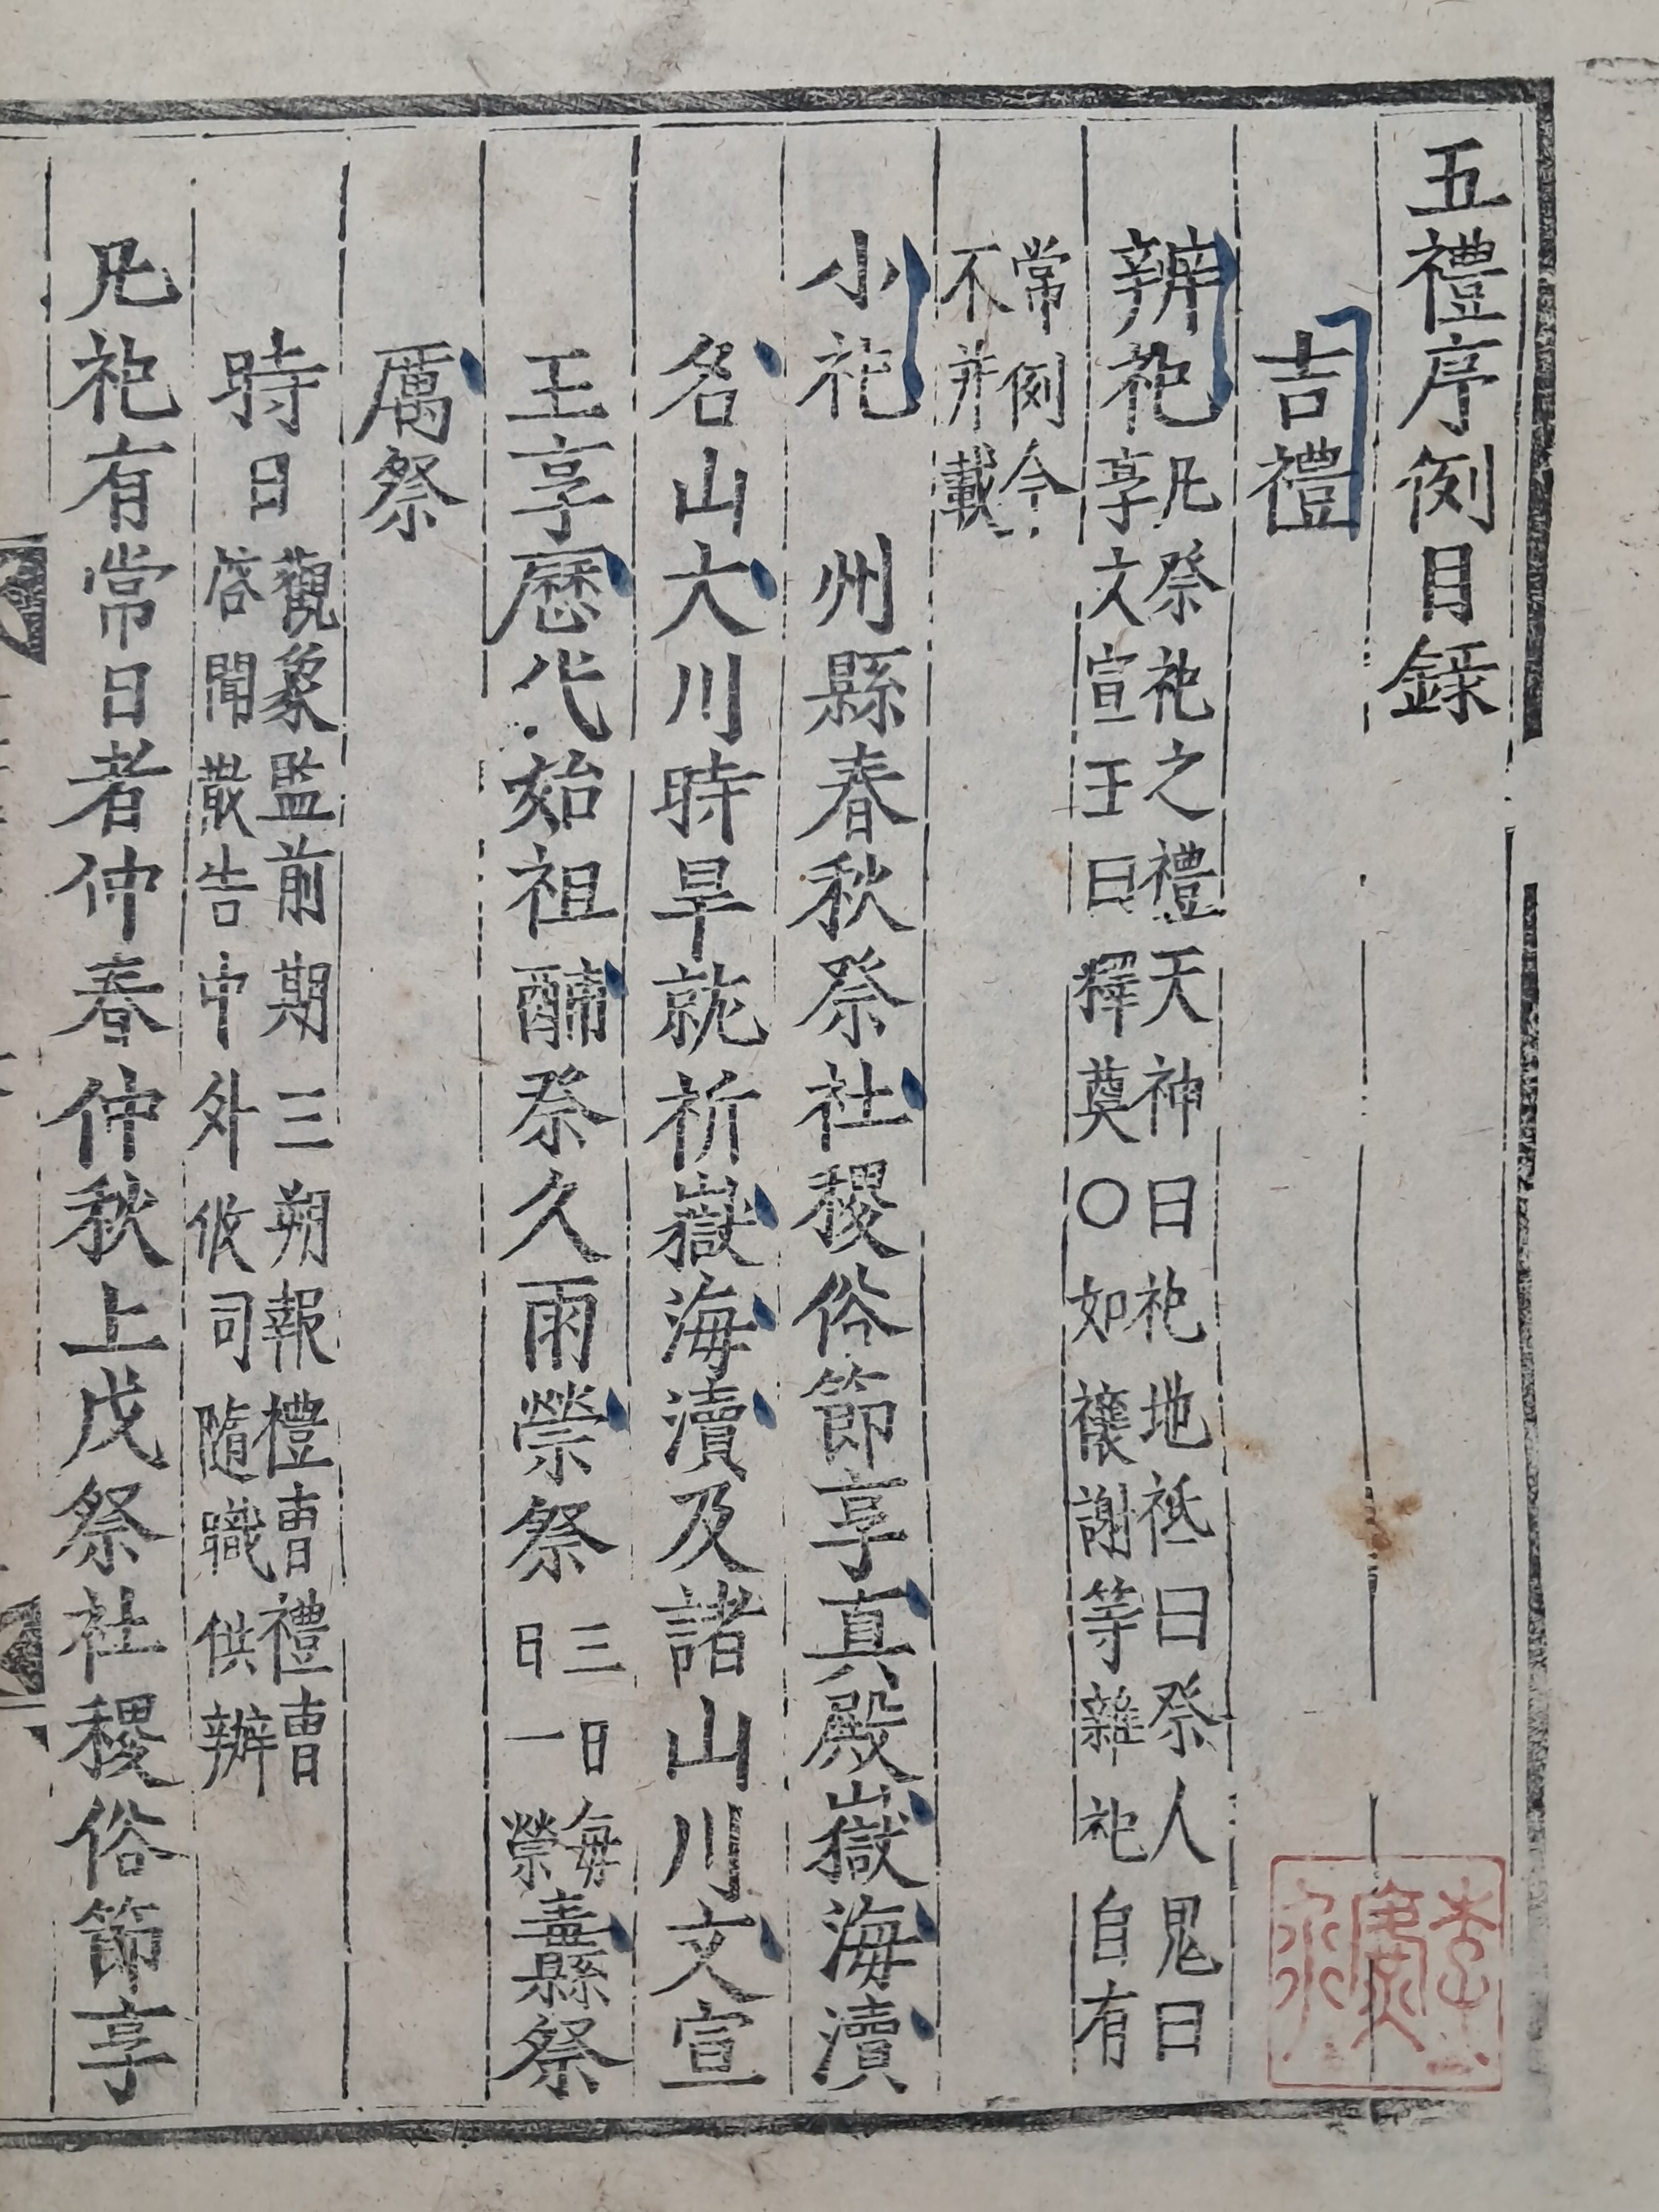 五禮序例目錄
吉禮
辨祀凡祭祀之禮天神曰祀地祗曰祭人鬼曰
享文宣王曰釋奠○如禳謝等雜祀自有
常例今
不并載
小祀 州縣春秋祭社稷俗節享真殿嶽海瀆
名山大川時旱就祈嶽海瀆及諸山川文宣
王享歷代始祖酺祭久雨禜祭三日每
日一禜纛祭
厲祭
時日觀象監前期三朔報禮曹禮曹
啓聞散告中外攸司隨職供辦
凡祀有常日者仲春仲秋上戊祭社稷俗節享